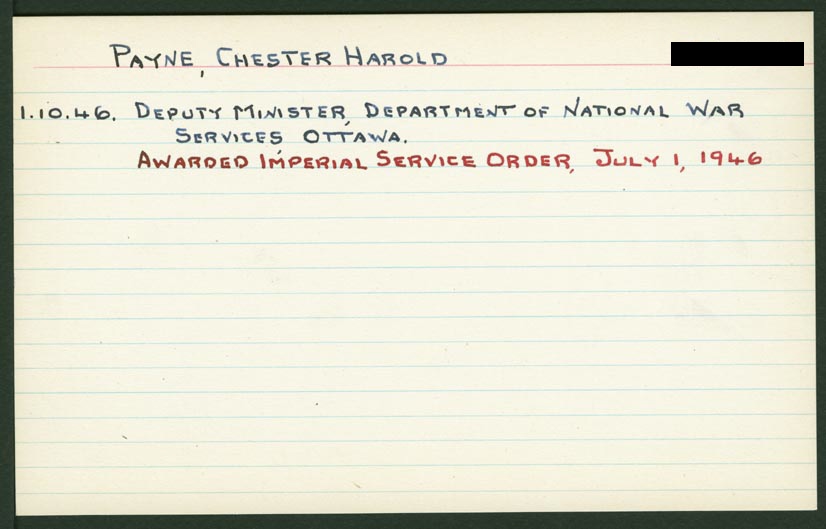 PAYNE, CHESTER HAROLD
1.10.46. DEPUTY MINISTER, DEPARTMENT OF NATIONAL WAR
SERVICES OTTAWA.
AWARDED IMPERIAL SERVICE ORDER, JULY 1, 1946